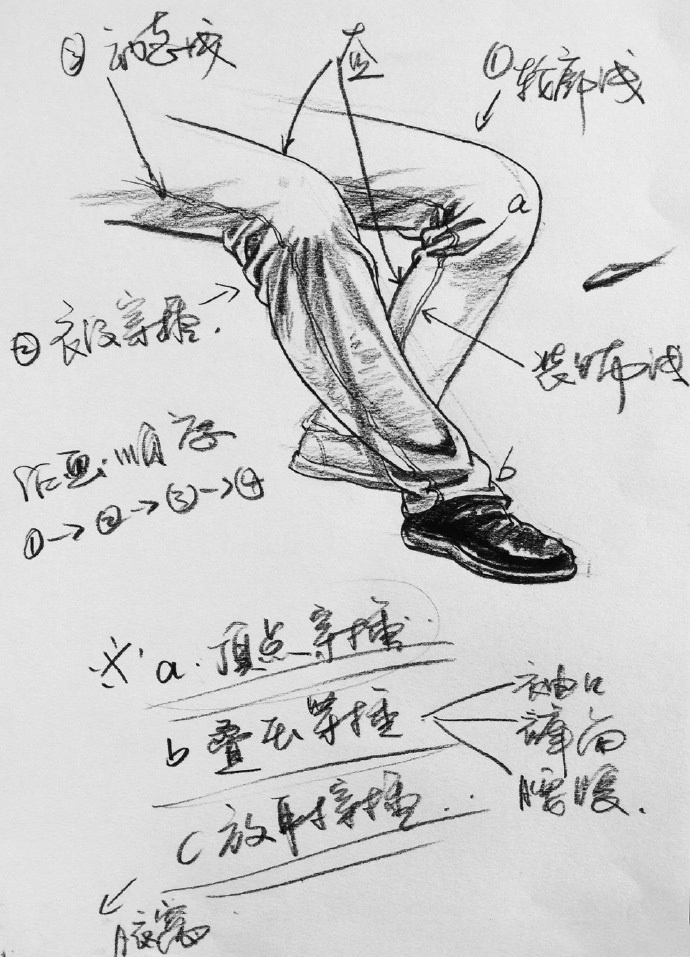 ③动态线
直
①轮廓线
a
②衣纹穿插
装饰线
作画顺序
①→②→③→④
b
※ a. 顶点穿插
b 叠压穿插
袖口
裤筒
腰腹.
c 放射穿插..
腋窝